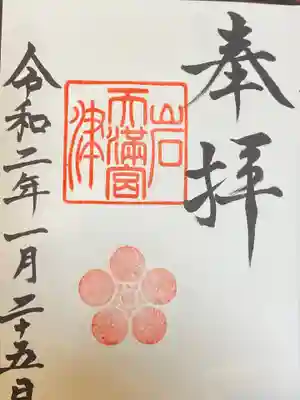 奉拝
岩津天満宮
令和二年一月二十五日